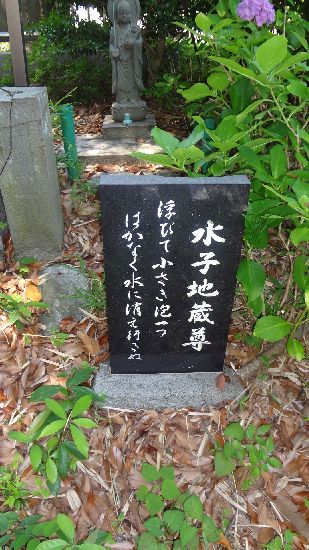 水子地蔵尊
浮びて小さき泡一つ
はかなく水に消え行きぬ